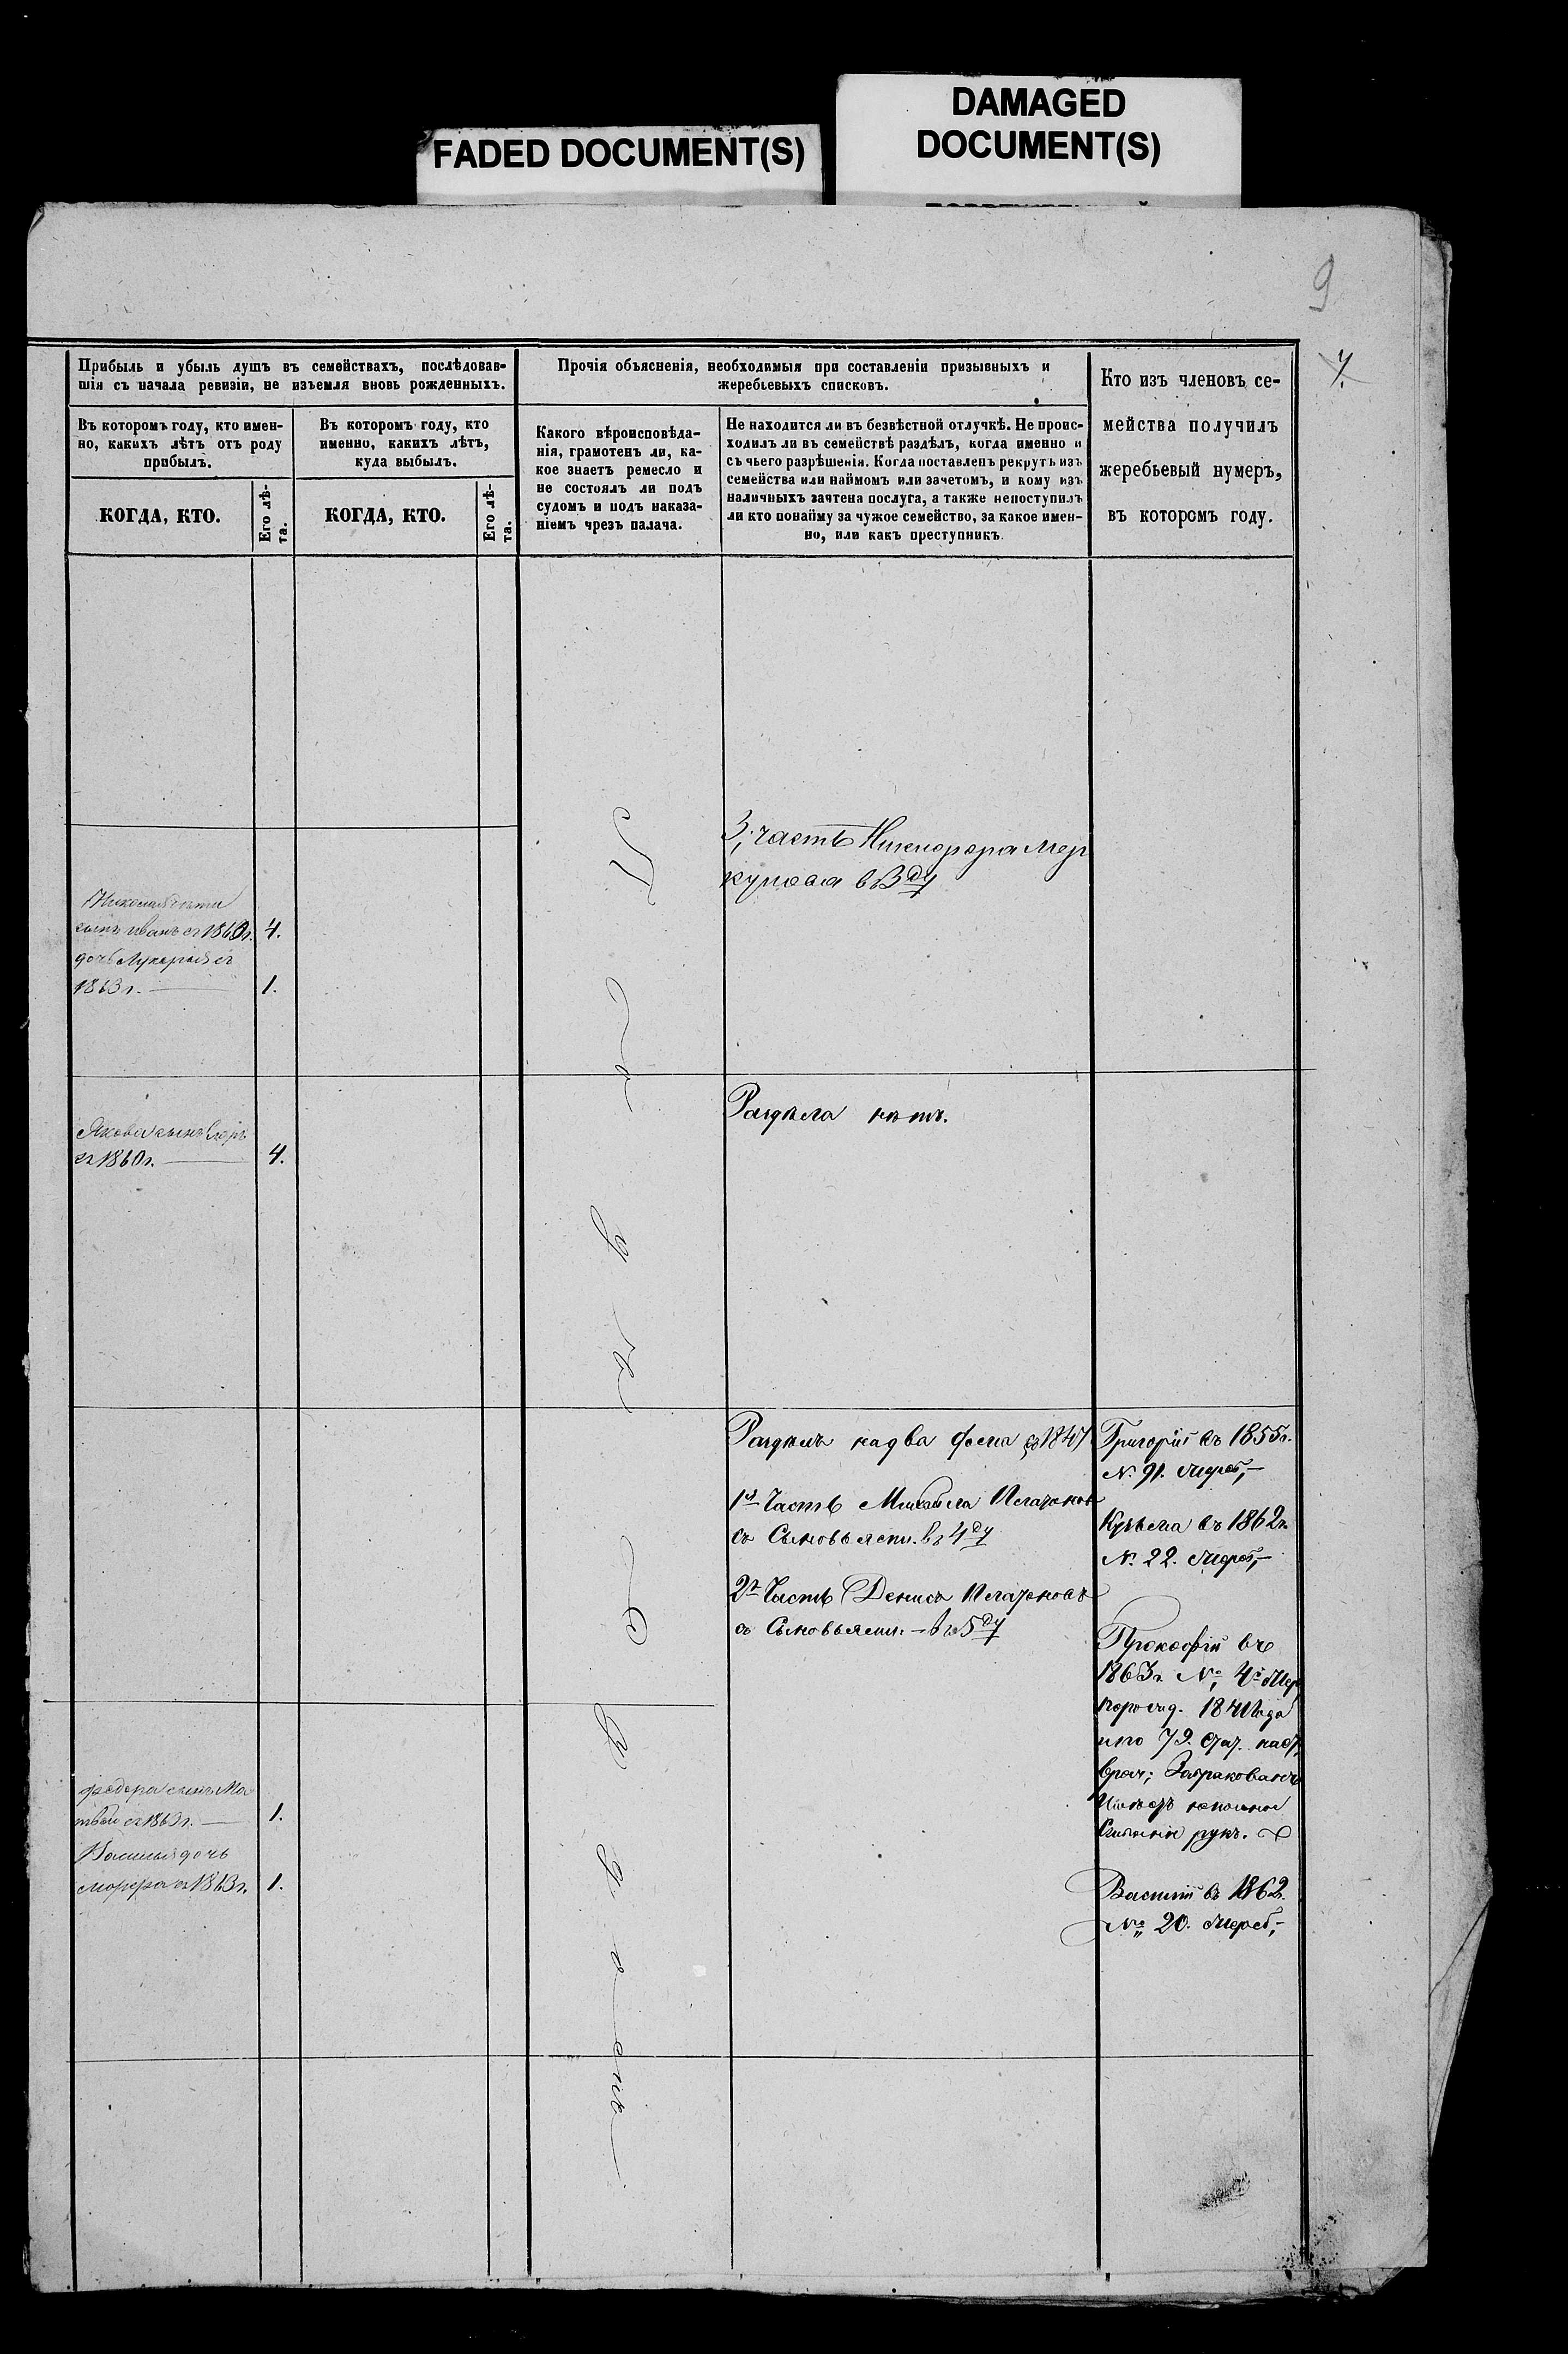 FADED DOCUMENT(S)
DAMAGED
DOCUMENT(S)
9
7.
Прибыль и убыль душъ въ семействахъ, послѣдовав-
шія съ начала ревизіи, не изъемля вновь рожденныхъ.
Въ которомъ году, кто имен-
но, какихъ лѣтъ отъ роду
прибылъ.
КОГДА, КТО.
Его лѣ-
та.
Въ которомъ году, кто
именно, какихъ лѣтъ,
куда выбылъ.
КОГДА, КТО.
Его лѣ-
та.
Прочія объясненія, необходимыя при составленіи призывныхъ и
жеребьевыхъ списковъ.
Какого вѣроисповѣда-
нія, грамотенъ ли, ка-
кое знаетъ ремесло и
не состоялъ ли подъ
судомъ и подъ наказа-
ніемъ чрезъ палача.
Не находится ли въ безвѣстной отлучкѣ. Не проис-
ходилъ ли въ семействѣ раздѣлъ, когда именно и
съ чьего разрѣшенія. Когда поставленъ рекрутъ изъ
семейства или наймомъ или зачетомъ, и кому изъ
наличныхъ зачтена послуга, а также непоступилъ
ли кто понайму за чужое семейство, за какое имен-
но, или какъ преступникъ.
Кто изъ членовъ се-
мейства получилъ
жеребьевый нумеръ,
въ которомъ году.
3, часть Никифора Мер
кулова в 3ду
Николая дѣти
сынъ иванъ съ 1860г. 4.
дочь Лукерья съ
1863г. 1.
Раздѣла нѣтъ.
Якова сынъ Егоръ
съ 1860г. 4.
Раздѣлъ на два дома 1847
1я Часть Михайла
съ Сыновьями. въ 4ду
2я Часть Денисъ
съ Сыновьями. – въ 5ду
Григорій въ 1855г.
№ 91.
Кузьма въ 1862г.
№ 22.
Прокофій въ
1863г № 4й
1841 года
79.
Забракованъ
рукъ.
Василій въ 1862.
№ 20. Жереб,–
Федора сынъ Ма
твѣй съ 1863г. 1.
Василья дочь
съ 1863г. 1.